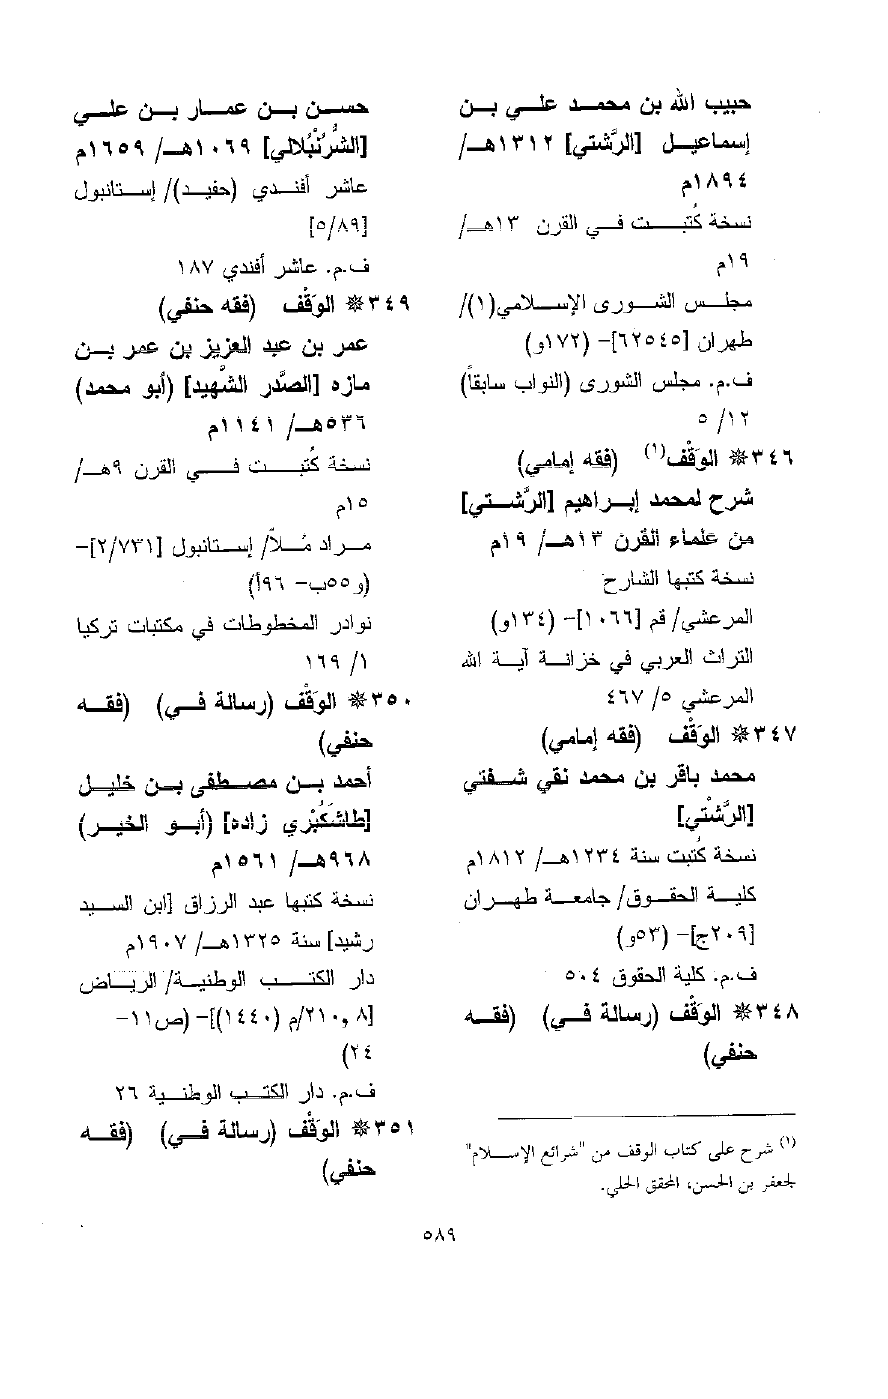 حبيب الله بن محمد علي بن
إسماعيل [الرَّشتي] ١٣١٢هـ/
١٨٩٤م
نسخة كُتبت في القرن ١٣هـ/
١٩م
مجلس الشورى الإسلامي(١)/
طهران [٦٢٥٤٥]- (١٧٢و)
ف.م. مجلس الشورى (النواب سابقاً)
١٢/ ٥
٣٤٦* الوَقْف(١) (فقه إمامي)
شرح لمحمد إبراهيم [الرَّشتي]
من علماء القرن ١٣هـ/ ١٩م
نسخة كتبها الشارح
المرعشي/ قم [١٠٦٦]- (١٣٤و)
التراث العربي في خزانة آية الله
المرعشي ٥/ ٤٦٧
٣٤٧* الوَقْف (فقه إمامي)
محمد باقر بن محمد نقي شفتي
[الرَّشْتي]
نسخة كُتبت سنة ١٢٣٤هـ/ ١٨١٢م
كلية الحقوق/ جامعة طهران
[٢٠٩ج]- (٥٣و)
ف.م. كلية الحقوق ٥٠٤
٣٤٨* الوَقْف (رسالة في) (فقه
حنفي)
(١) شرح على كتاب الوقف من "شرائع الإسلام"
لجعفر بن الحسن، المحقق الحلي.
حسن بن عمار بن علي
[الشُّرُنْبُلالي] ١٠٦٩هـ/ ١٦٥٩م
عاشر أفندي (حفيد)/ إستانبول
[٥/٨٩]
ف.م. عاشر أفندي ١٨٧
٣٤٩* الوَقْف (فقه حنفي)
عمر بن عبد العزيز بن عمر بن
مازه [الصَّدر الشَّهيد] (أبو محمد)
٥٣٦هـ/ ١١٤١م
نسخة كُتبت في القرن ٩هـ/
١٥م
مراد مُلاّ/ إستانبول [٢/٧٣١]-
(و٥٥ب- ٩٦أ)
نوادر المخطوطات في مكتبات تركيا
١/ ١٦٩
٣٥٠* الوَقْف (رسالة في) (فقه
حنفي)
أحمد بن مصطفى بن خليل
[طاشَكُبْري زاده] (أبو الخير)
٩٦٨هـ/ ١٥٦١م
نسخة كتبها عبد الرزاق [ابن السيد
رشيد] سنة ١٣٢٥هـ/ ١٩٠٧م
دار الكتب الوطنية/ الرياض
[٢١٠,٨/م (١٤٤٠)]- (ص١١-
٢٤)
ف.م. دار الكتب الوطنية ٢٦
٣٥١* الوَقْف (رسالة في) (فقه
حنفي)
٥٨٩